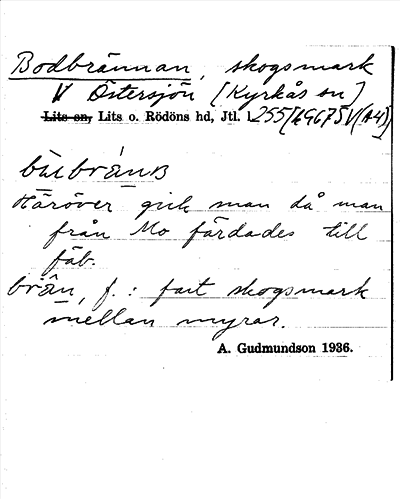 Bodbrännan, skogsmark
V Östersjön [Kyrkås sn]
Lits sn, Lits o. Rödöns hd, Jtl.
Häröver gick man då man
från Mo färdades till
fäb.
brän, f.: fast skogsmark
mellan myrar.
A. Gudmundson 1936.